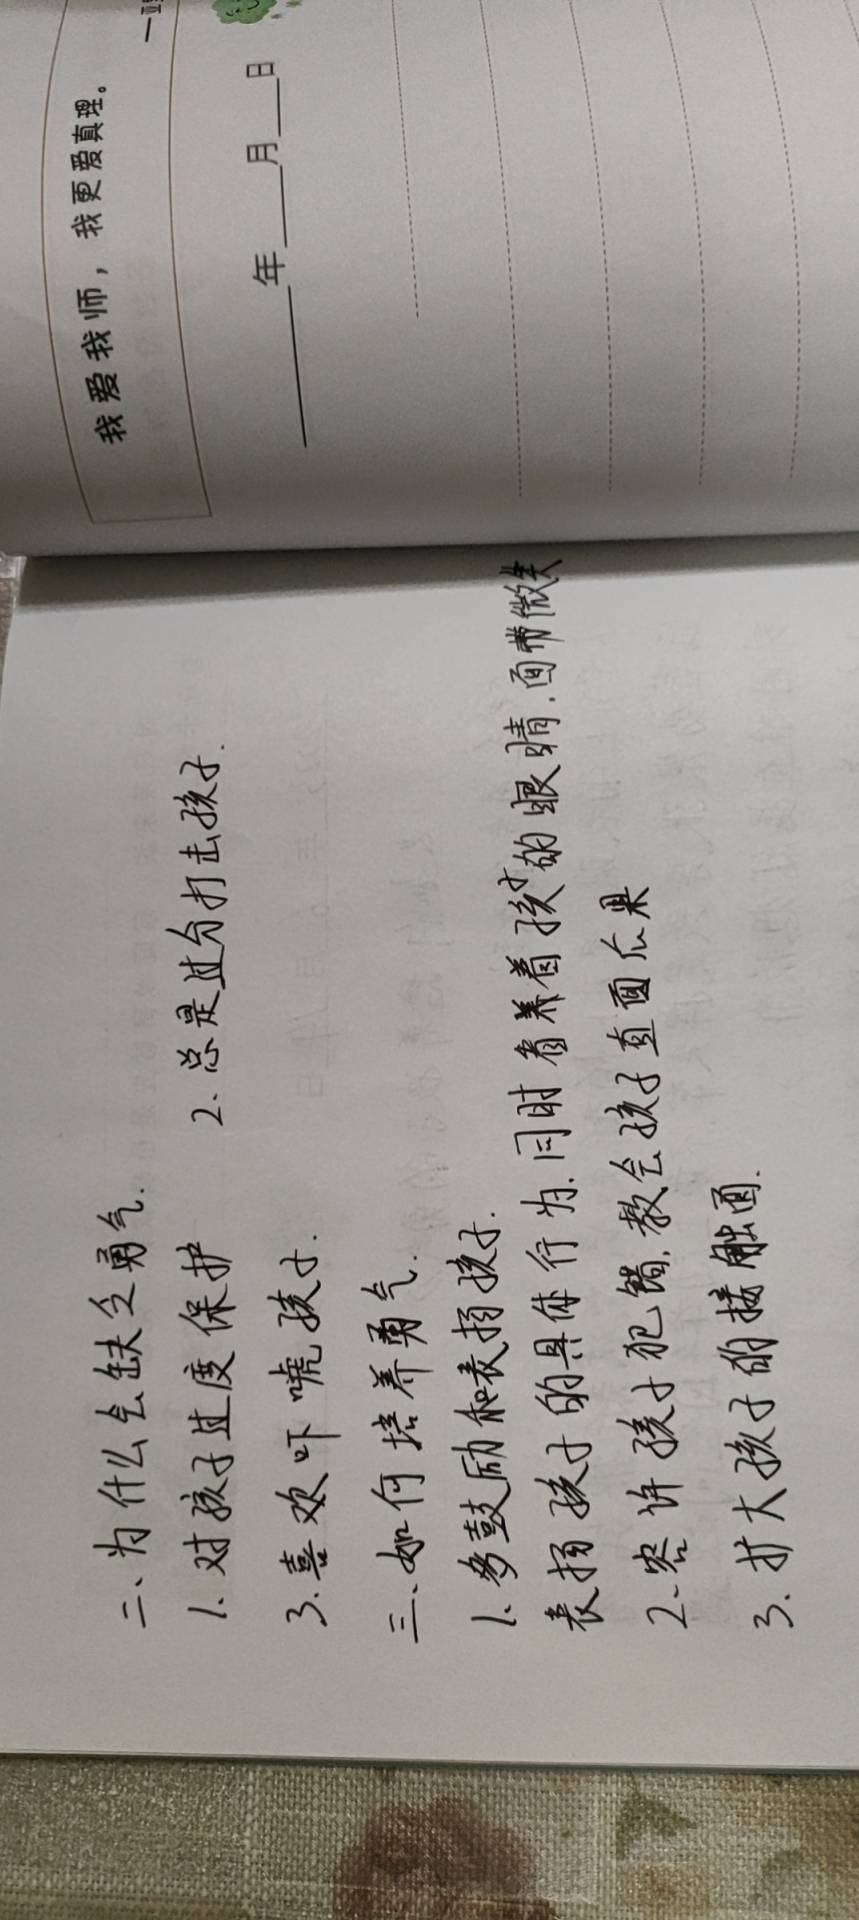 二、为什么会缺乏勇气.
1、对孩子过度保护 2、总是过分打击孩子.
3、喜欢吓唬孩子.
三、如何培养勇气.
1、多鼓励和表扬孩子.
表扬孩子的具体行为.同时看着孩子的眼睛.面带微笑
2、容许孩子犯错.教会孩子直面后果
3、扩大孩子的接触面.
我爱我师，我更爱真理。
年 月 日